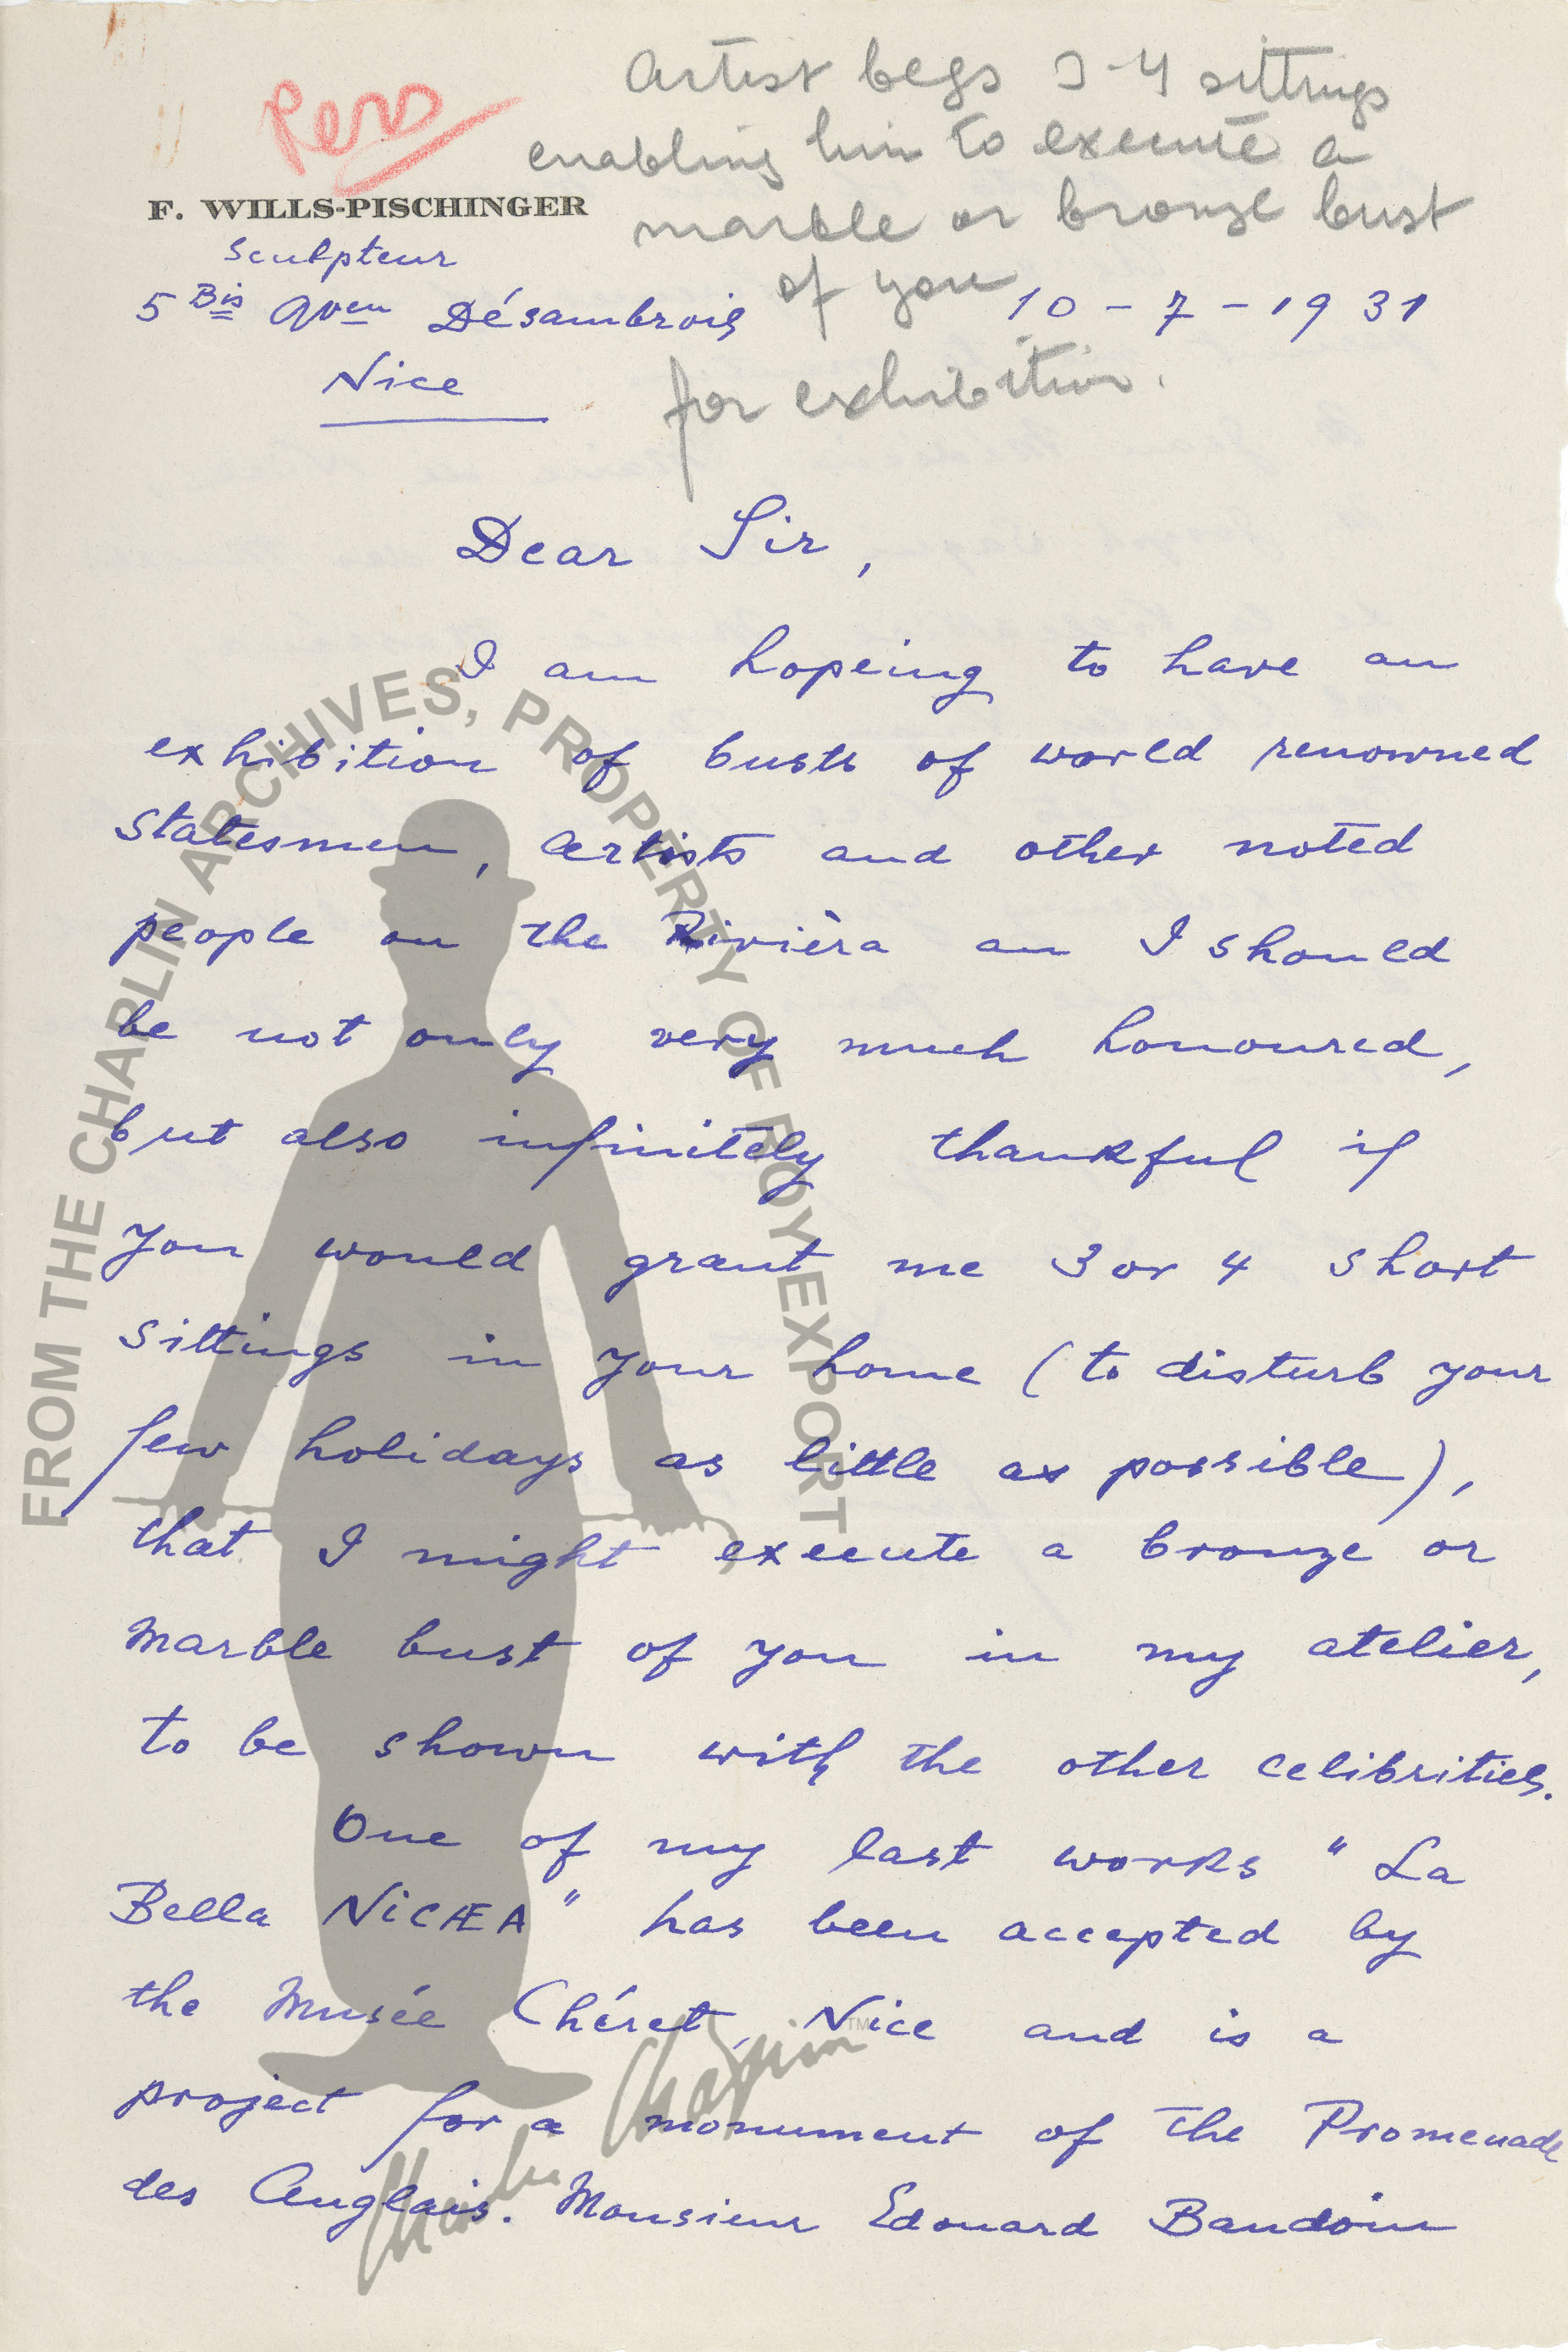 Pers
artist begs 3-4 sittings
enabling him to execute a
marble or bronze bust
of you
for exhibition.
F. WILLS-PISCHINGER
Sculpteur
5 Bis Aven Désambrois
10-7-1931
Nice
Dear Sir,
I am hopeing to have an
exhibition of busts of world renowned
statesmen, artists and other noted
people on the Rivièra an I should
be not only very much honoured,
but also infinitely thankful if
you would grant me 3 or 4 short
sittings in your home (to disturb your
few holidays as little as possible),
that I might execute a bronze or
marble bust of you in my atelier,
to be shown with the other celibrities.
One of my last works "La
Bella NiCÆA" has been accepted by
the Musée Chéret, Nice and is a
project for a monument of the Promenade
des Anglais. Monsieur Edouard Baudoin
FROM THE CHARLIN ARCHIVES, PROPERTY OF ROY EXPORT
Charlie Chaplin TM